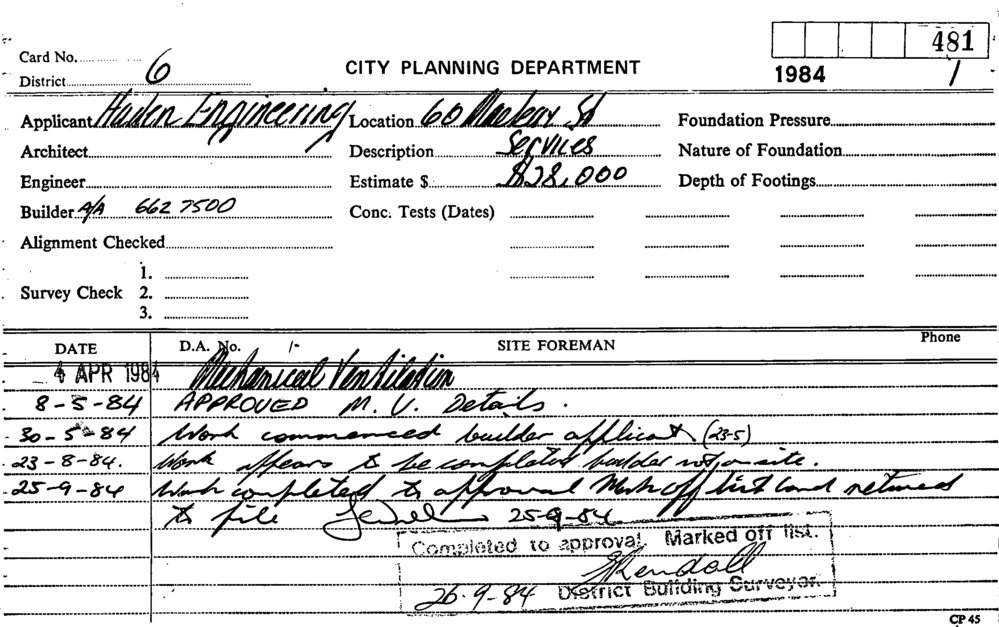 481
Card No. 6
CITY PLANNING DEPARTMENT
1984 /
District
Applicant Haden Engineering Location 60 Mackay St Foundation Pressure
Architect Description Services Nature of Foundation
Engineer Estimate $ $28,000 Depth of Footings
Builder A/A 662 7500 Conc. Tests (Dates)
Alignment Checked
1.
Survey Check 2.
3.
DATE D.A. No. /- SITE FOREMAN Phone
4 APR 1984 Mechanical Ventilation
8-5-84 APPROVED M.V. Details.
30-5-84 Work commenced builder applicant (23-5)
23-8-84. Work appears to be completed builder not on site.
25-9-84 Work completed to approval Mark off list card returned
to file 25-9-84
Completed to approval. Marked off list.
26-9-84 District Building Surveyor.
CP 45